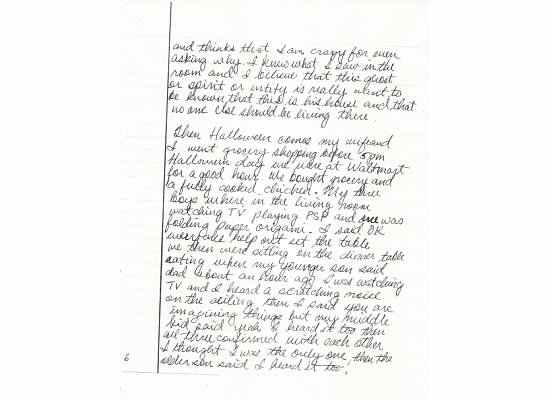 and thinks that I am crazy for even
asking why. I know what I saw in the
room and I believe that this guest
or spirit or entity is really want to
be known that this is his house and that
no one else should be living there.
Then Halloween comes my wife and
I went grocery shopping before 5pm
Halloween day we were at Waltmart
for a good hour. We bought grocery and
a fully cooked chicken. My three
boys where in the living room
watching TV playing PSP and one was
folding paper origami. I said OK
everyone help out set the table
we then were sitting on the dinner table
eating when my younger son said
dad about an hour ago I was watching
TV and I heard a scratching noise
on the ceiling then I said you are
imagining things but my middle
kid said yeah I heard it too then
all three confirmed with each other
I thought I was the only one, then the
older son said I heard it too!
6